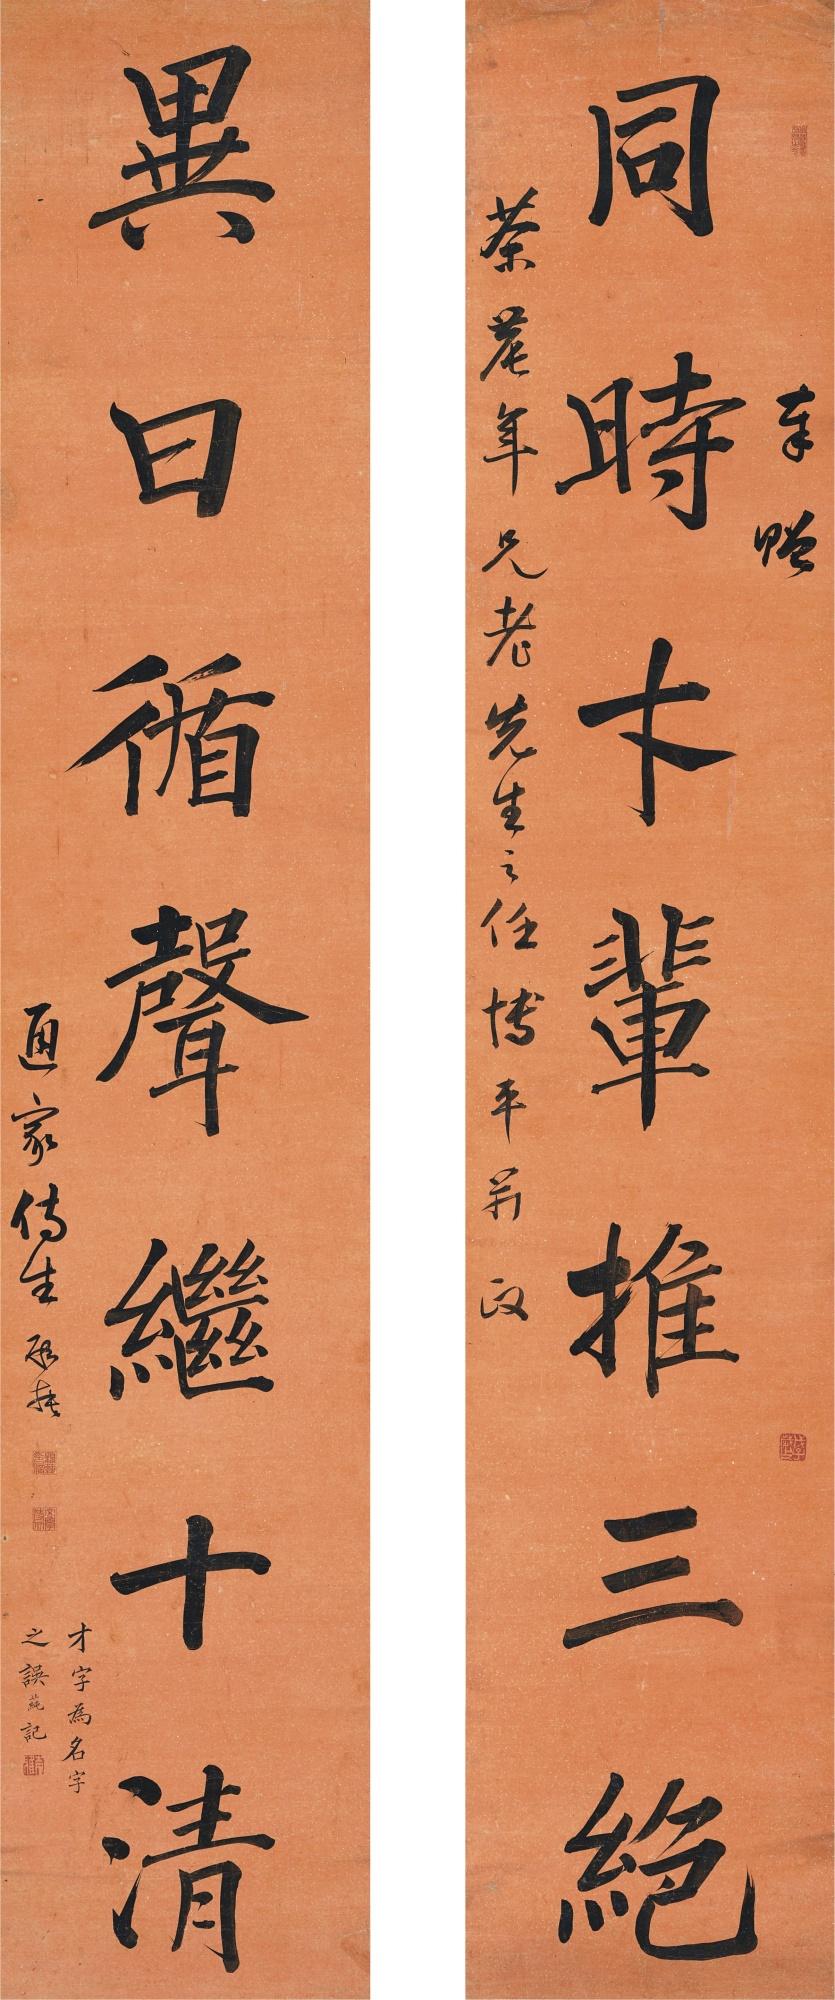 奉贈
同時才輩推三絕
茶農年兄老先生之任博平 政
異日循聲繼十清
通家侍生顧蒓
才字為名字
之誤蒓記